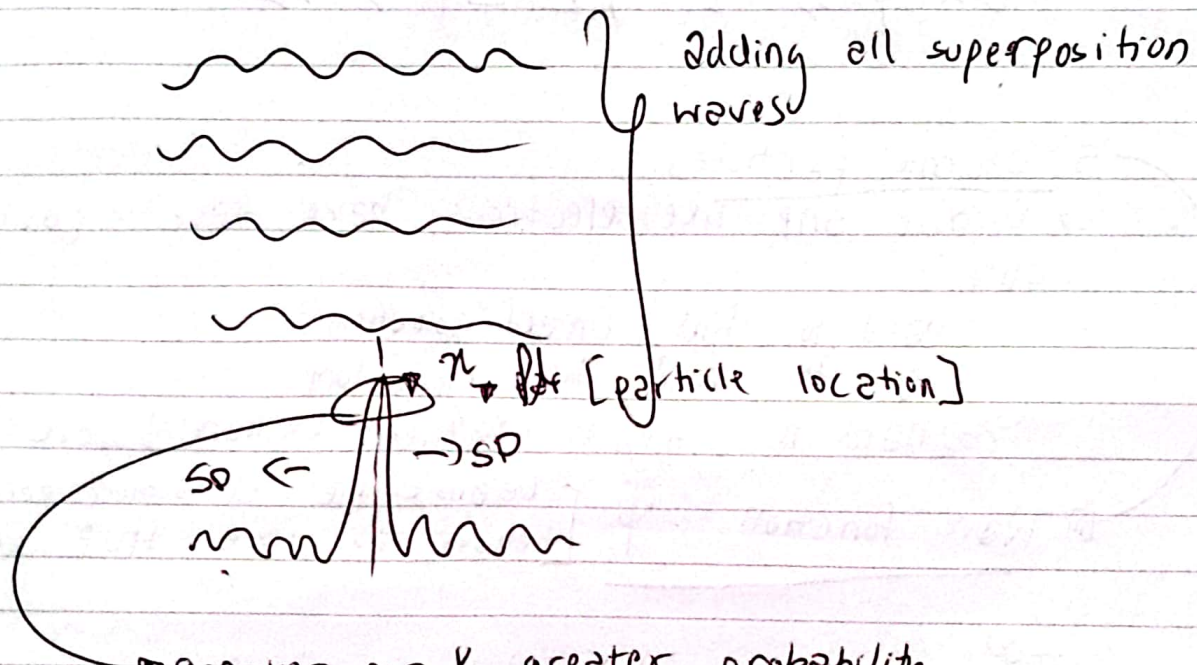 adding all superposition
waves
x [particle location]
SP ← → SP
greater probability